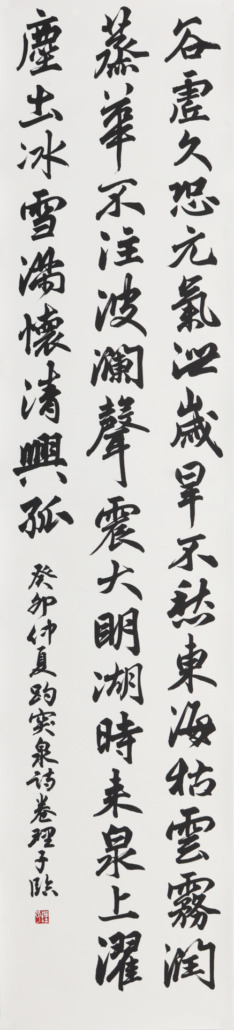 谷虚久恐元氣泄歲旱不愁東海枯雲霧潤
蒸華不注波瀾聲震大明湖時來泉上濯
塵土冰雪滿懷清興孤
癸卯仲夏趵突泉詩卷理子臨